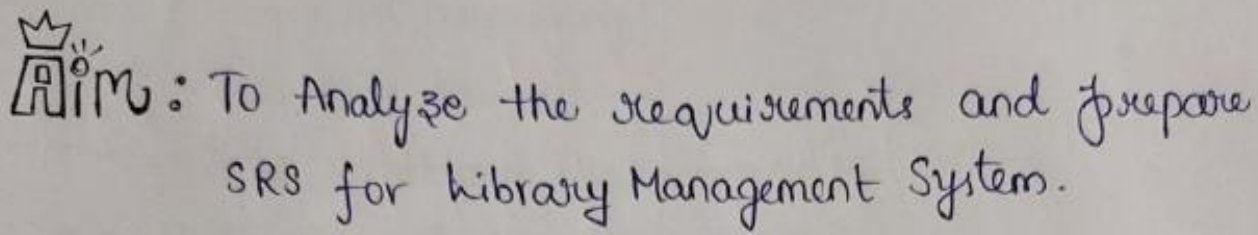 Aim : To Analyze the requirements and prepare
SRS for Library Management System.